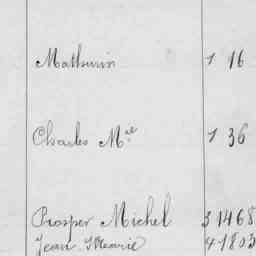 Mathurin 1 16
Charles Mel 1 36
Prosper Michel 3 1468
Jean Marie 4 1803